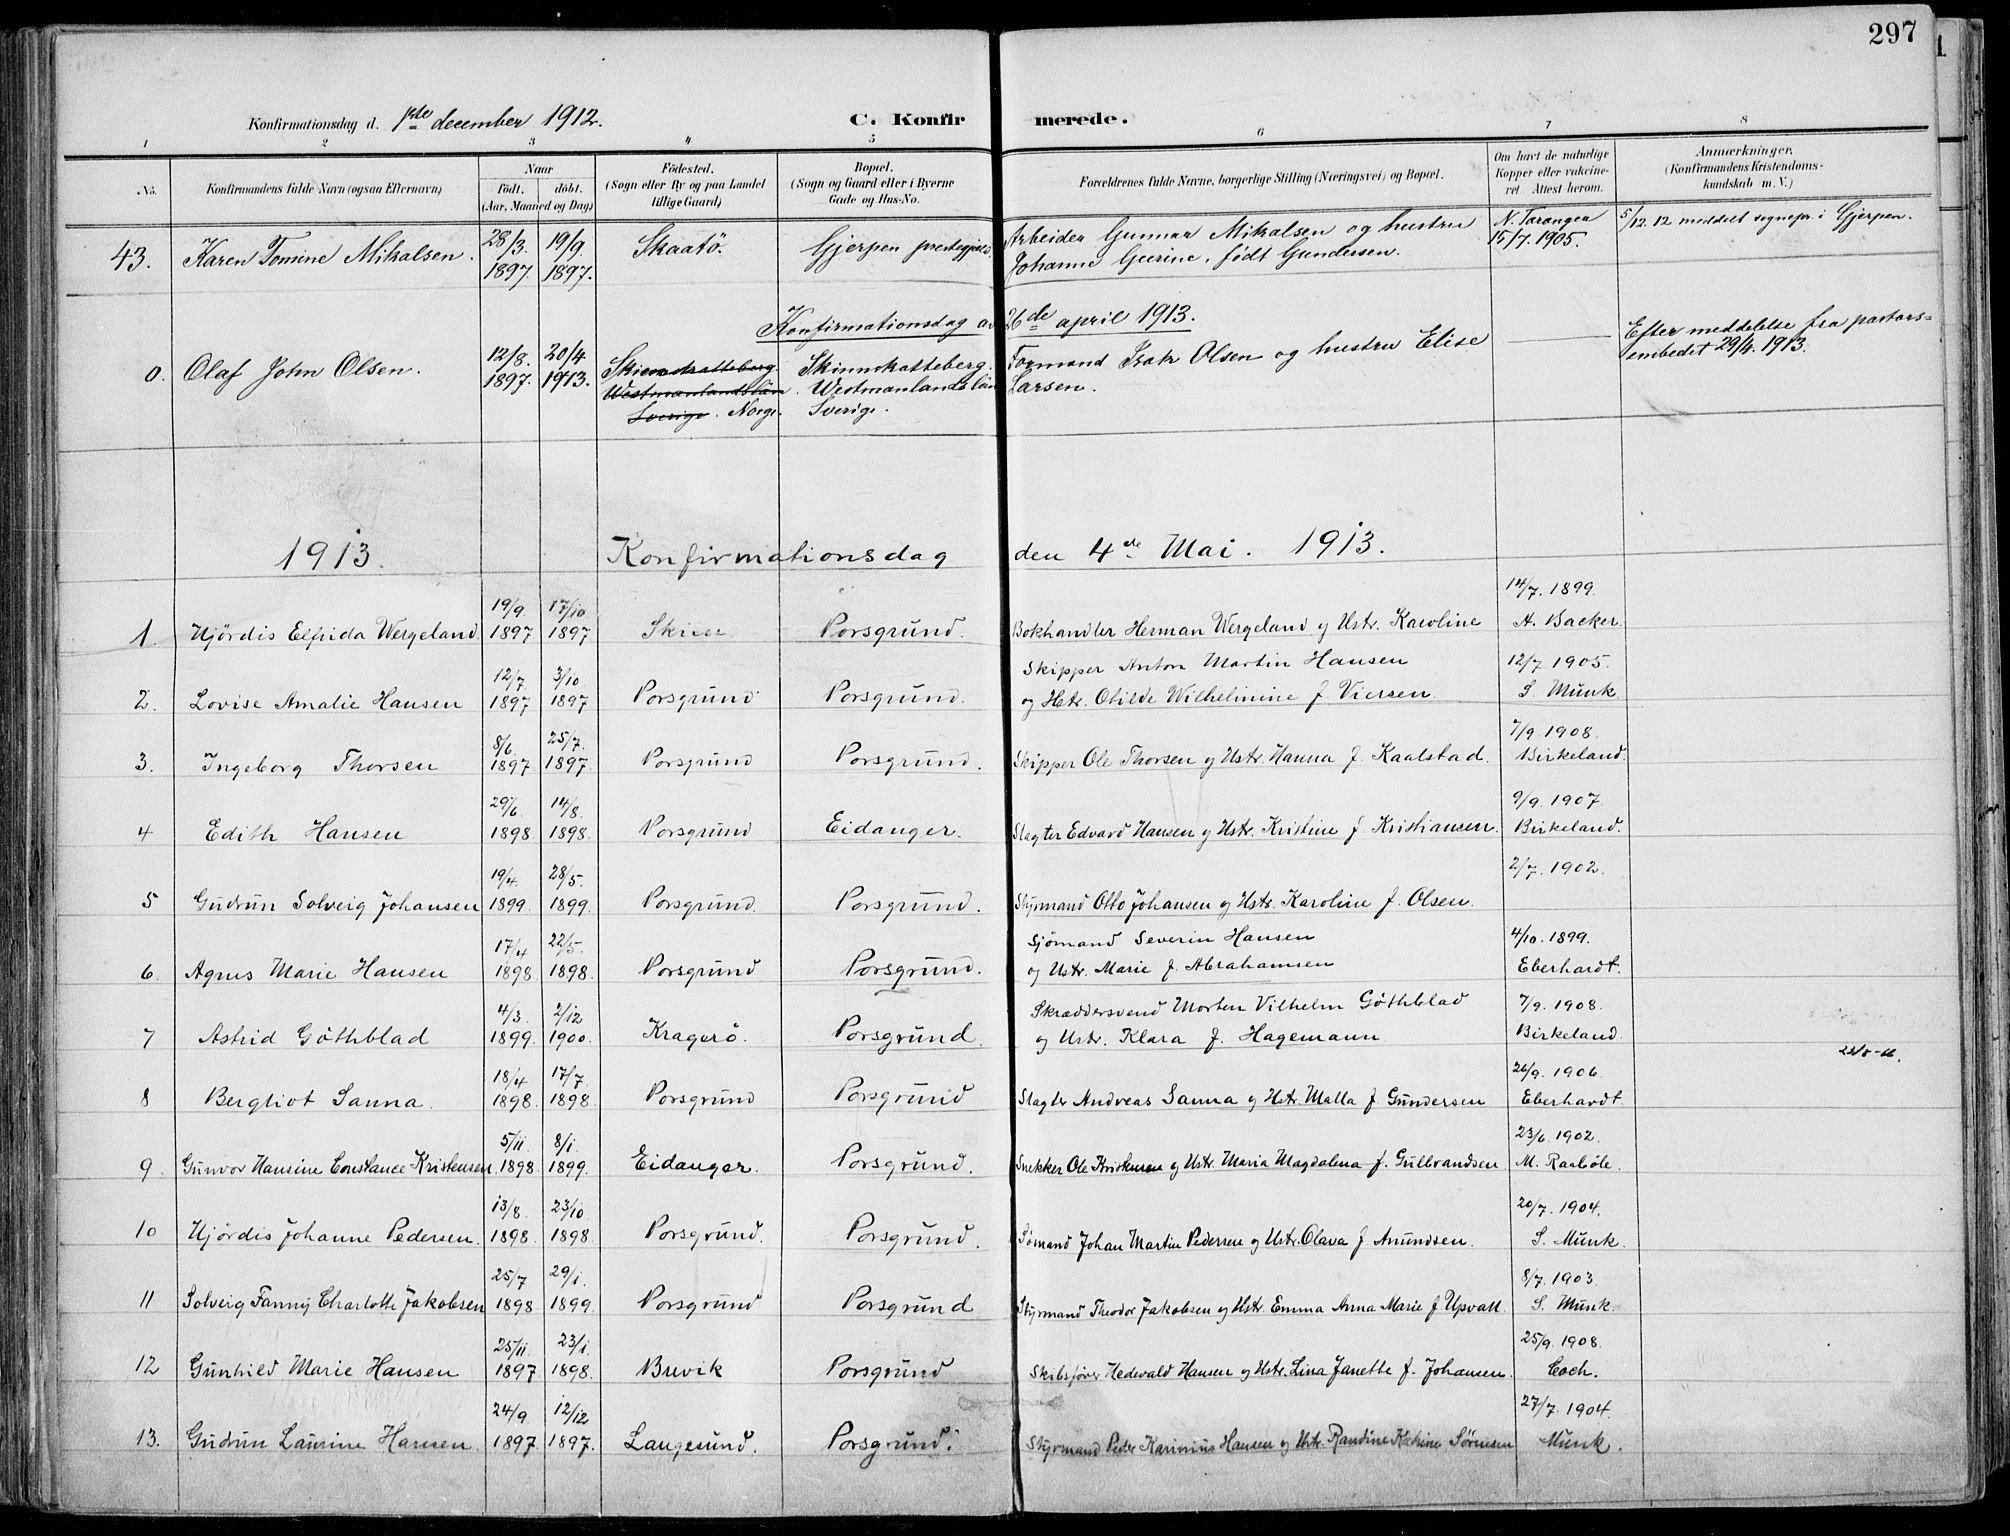 297
Konfirmationsdag d. 1ste december 1912.
C. Konfirmerede.
1 2 3 4 5 6 7 8
No.
Konfirmandens fulde Navn (ogsaa Efternavn)
Naar
født. døbt.
(Aar, Maaned og Dag)
Fødested.
(Sogn eller By og paa Landet
tillige Gaard)
Bopæl.
(Sogn og Gaard eller i Byerne
Gade og Hus-No.
Forældrenes fulde Navne, borgerlige Stilling (Næringsvei) og Bopæl.
Om havt de naturlige
Kopper eller vakcine-
ret Attest herom.
Anmærkninger.
(Konfirmandens Kristendoms-
kundskab m. V.)
43. Karen Tomine Mikalsen. 28/3. 1897. 19/9. 1897. Skaatö. Gjerpen prestegjæld. Arbeider Gunnar Mikalsen og hustru
Johanne Geerine, født Gundersen. N. Tarangen 15/7. 1905. 5/12.12 meddelt sognepr. i Gjerpen.
Konfirmationsdag av 26de april 1913.
0. Olaf John Olsen. 12/8. 1897. 20/4 1913. Skinnskatteberg Westmanlandslän Sverige. Norge. Skinnskatteberg. Westmanlands län Sverige. Formand Isak Olsen og hustru Elise
Larsen. Efter meddelelse fra pastors-
embedet 29/4. 1913.
1913. Konfirmationsdag den 4de Mai. 1913.
1. Hjördis Elfrida Wergeland. 19/9. 1897 17/10. 1897 Skien Porsgrund. Bokhandler Herman Wergeland og Hstr. Karoline 14/7. 1899. A. Backer.
2. Lovise Amalie Hansen 12/7 1897 3/10 1897 Porsgrund Porsgrund. Skipper Anton Martin Hansen
og Hstr. Otilde Wilhelmine f. Viersen. 12/7. 1905. S. Munk.
3. Ingeborg Thorsen 8/6. 1897 25/7. 1897. Porsgrund Porsgrund. Skipper Ole Thorsen og Hstr. Hanna f. Kaalstad. 7/9. 1908. Birkeland.
4 Edith Hansen 29/6. 1898 14/8. 1898. Porsgrund Eidanger. Slagter Edvard Hansen og Hstr. Kristine f. Kristiansen. 9/9. 1907. Birkeland.
5 Gudrun Solveig Johansen 19/4. 1899. 28/5. 1899. Porsgrund. Porsgrund. Styrmand Otto Johansen og Hstr. Karoline f. Olsen. 2/7. 1902.
6. Agnes Marie Hansen 17/4 1898 22/5. 1898. Porsgrund Porsgrund. Sjömand Severin Hansen
og Hstr. Marie f. Abrahamsen 4/10. 1899. Eberhardt.
7 Astrid Göthblad 4/3. 1899. 2/12 1900. Kragerö. Porsgrund. Skræddersvend Morten Vilhelm Göthblad
og Hstr. Klara f. Hagemann 7/9. 1908. Birkeland.
8 Bergliot Sanna. 18/4 1898. 17/7. 1898. Porsgrund Porsgrund Slagter Andreas Sanna og Hstr. Malla f. Gundersen 26/9. 1906. Eberhardt.
9. Gunvor Hansine Constance Kristensen. 5/11. 1898. 8/1. 1899. Eidanger. Porsgrund. Snekker Ole Kristensen og Hstr. Maria Magdalena f. Gulbrandsen 23/6. 1902. M. Raabøle.
10 Hjördis Johanne Pedersen. 13/8. 1898. 23/10. 1898. Porsgrund. Porsgrund. Sömand Johan Martin Pedersen og Hstr. Olava f. Amundsen. 20/7. 1904. S. Munk.
11 Solveig Fanny Charlotte Jakobsen 25/7 1898 29/1. 1899. Porsgrund Porsgrund Styrmand Theodor Jakobsen og Hstr. Emma Anna Marie f. Upvall 8/7. 1903. S. Munk.
12 Gunhild Marie Hansen 25/11. 1897 23/1. 1898. Brevik Porsgrund Skibsfører Hedevald Hansen og Hstr. Lina Janette f. Johansen. 25/9. 1908. Coch.
13. Gudrun Laurine Hansen. 24/9. 1897. 12/12 1897. Langesund. Porsgrund. Styrmand Peder Karinius Hansen og Hstr. Randine Katrine Sørensen 27/7. 1904. Munk.